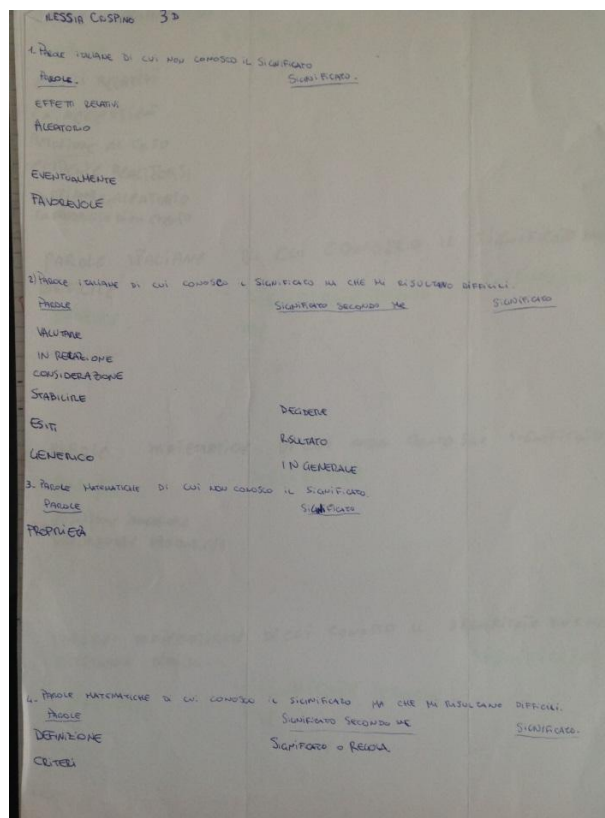 ALESSIA COSPINO 3D
1. PAROLE ITALIANE DI CUI NON CONOSCO IL SIGNIFICATO
PAROLE. SIGNIFICATO.
EFFETTI RELATIVI
ALEATORIO
EVENTUALMENTE
FAVOREVOLE
2) PAROLE ITALIANE DI CUI CONOSCO IL SIGNIFICATO MA CHE MI RISULTANO DIFFICILI.
PAROLE SIGNIFICATO SECONDO ME SIGNIFICATO
VALUTARE
IN RELAZIONE
CONSIDERAZIONE
STABILIRE DECIDERE
ESITI RISULTATO
GENERICO IN GENERALE
3. PAROLE MATEMATICHE DI CUI NON CONOSCO IL SIGNIFICATO.
PAROLE SIGNIFICATO
PROPRIETÀ
4. PAROLE MATEMATICHE DI CUI CONOSCO IL SIGNIFICATO MA CHE MI RISULTANO DIFFICILI.
PAROLE SIGNIFICATO SECONDO ME SIGNIFICATO.
DEFINIZIONE SIGNIFICATO O REGOLA
CRITERI